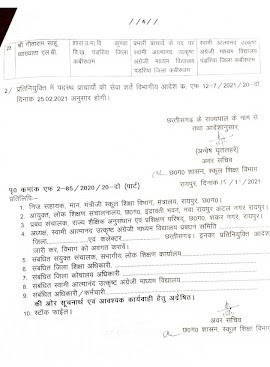 //4//
श्री गीताराम साहू शास.उ.मा.वि. कुण्डा प्रभारी प्राचार्य के पद पर स्वामी आत्मानंद उत्कृष्ट
व्याख्याता एल.बी. पंडरिया जिला स्वामी आत्मानंद उत्कृष्ट अंग्रेजी माध्यम विद्यालय
कबीरधाम अंग्रेजी माध्यम विद्यालय पंडरिया जिला कबीरधाम
पंडरिया जिला कबीरधाम
2/ प्रतिनियुक्ति में पदस्थ प्राचार्यों की सेवा शर्ते विभागीय आदेश क. एफ 12-7/2021/20-दो
दिनांक 25.02.2021 अनुसार होगी।
छत्तीसगढ़ के राज्यपाल के नाम से
तथा आदेशानुसार,
अवर सचिव
छ0ग0 शासन, स्कूल शिक्षा विभाग
पृ0 कमांक एफ 2-65/2020/20-दो (पार्ट) रायपुर, दिनांक
प्रतिलिपि:-
1. निज सहायक, मान. मंत्रीजी स्कूल शिक्षा विभाग, मंत्रालय, रायपुर, छ0ग0।
2. आयुक्त, लोक शिक्षण संचालनालय, छ0ग0, इंद्रावती भवन, नवा रायपुर अटल नगर रायपुर।
3. प्रबंध संचालक, राज्य शैक्षिक अनुसंधान एवं प्रशिक्षण परिषद, छ0ग0, शंकर नगर, रायपुर।
4. अध्यक्ष, स्वामी आत्मानंद उत्कृष्ट अंग्रेजी माध्यम विद्यालय प्रबंधन समिति
जिला.......एवं कलेक्टर..........छत्तीसगढ़। इनका प्रतिनियुक्ति आदेश
जारी कर, विभाग को अवगत करावें।
5. संबंधित संयुक्त संचालक, संभागीय लोक शिक्षण कार्यालय
6. संबंधित जिला शिक्षा अधिकारी,
7. संबंधित जिला कोषालय अधिकारी
8. संबंधित स्वामी आत्मानंद उत्कृष्ट अंग्रेजी माध्यम विद्यालय
9. संबंधित अधिकारी/कर्मचारी
की ओर सूचनार्थ एवं आवश्यक कार्यवाही हेतु अग्रेषित।
10. स्टॉक फाईल।
अवर सचिव
छ0ग0 शासन, स्कूल शिक्षा विभाग